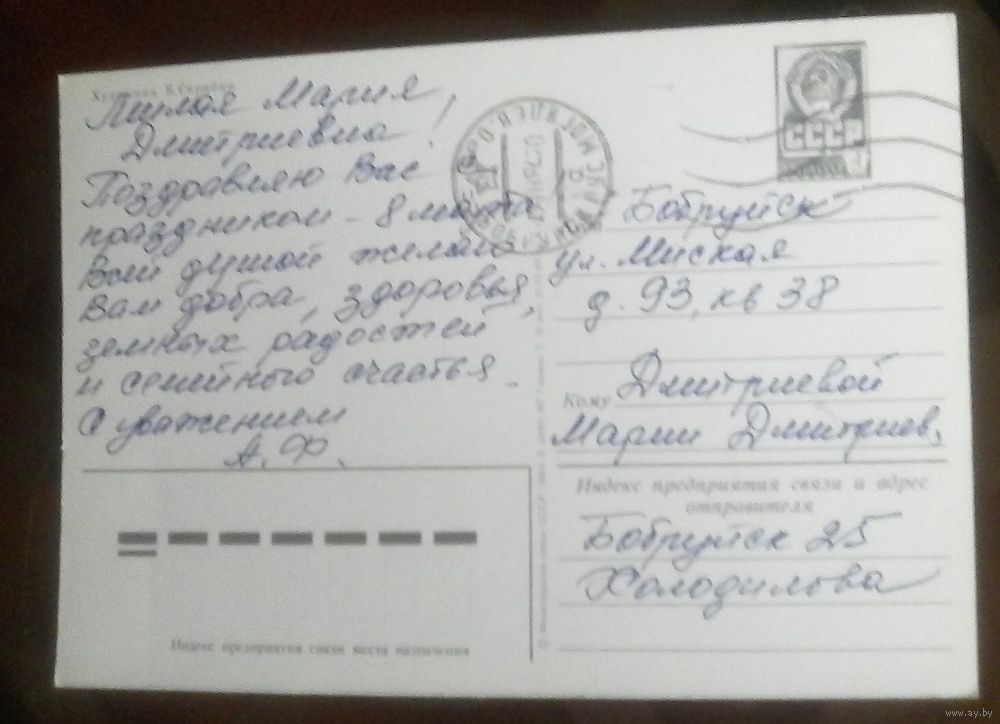 Художник
Милая Мария
Дмитриевна!
Поздравляю Вас с
праздником - 8 марта
Всей душой желаю
Вам добра, здоровья,
земных радостей
и семейного счастья.
С уважением
А. Ф.
СССР
Бобруйск
ул. Минская
д. 93, кв 38
Кому Дмитриевой
Марии Дмитриев.
Индекс предприятия связи и адрес
отправителя
Бобруйск 25
Холодилова
Индекс предприятия связи места назначения
www.ay.by